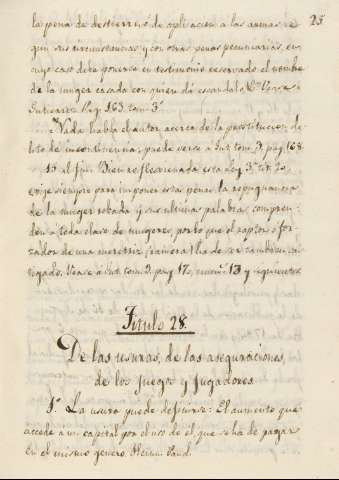 25
la pena de destierro, de aplicacion a las armas se
gun sus circunstancias, y con otras penas pecuniarias, en
cuyo caso debe ponerse en testimonio reservado el nombre
de la muger casada con quien dá escandalo. Vease a
Gutierrez Pag. 163. tom. 3º
Nada habla el autor acerca de la prostitucion, de
lito de incontinencia; puede verse a Gut. tom. 3. pag 168.
15 al fin. Bien reflexionada esta Ley 3ª tit. 20
exige siempre para imponer estas penas la repugnancia
de la muger robada y sus ultimas palabras compren-
den a toda clase de mugeres, por lo que el raptor o for-
zador de una meretriz (ramera) ha de ser tambien cas-
tigado. Vease a Gut. tom. 3. pag 170, num. 13 y siguientes.
Titulo 28.
De las usuras, de las aseguraciones,
de los juegos y jugadores.
1º La usura puede definirse: El aumento que
accede á un capital por el uso de el, que se ha de pagar
en el mismo genero.